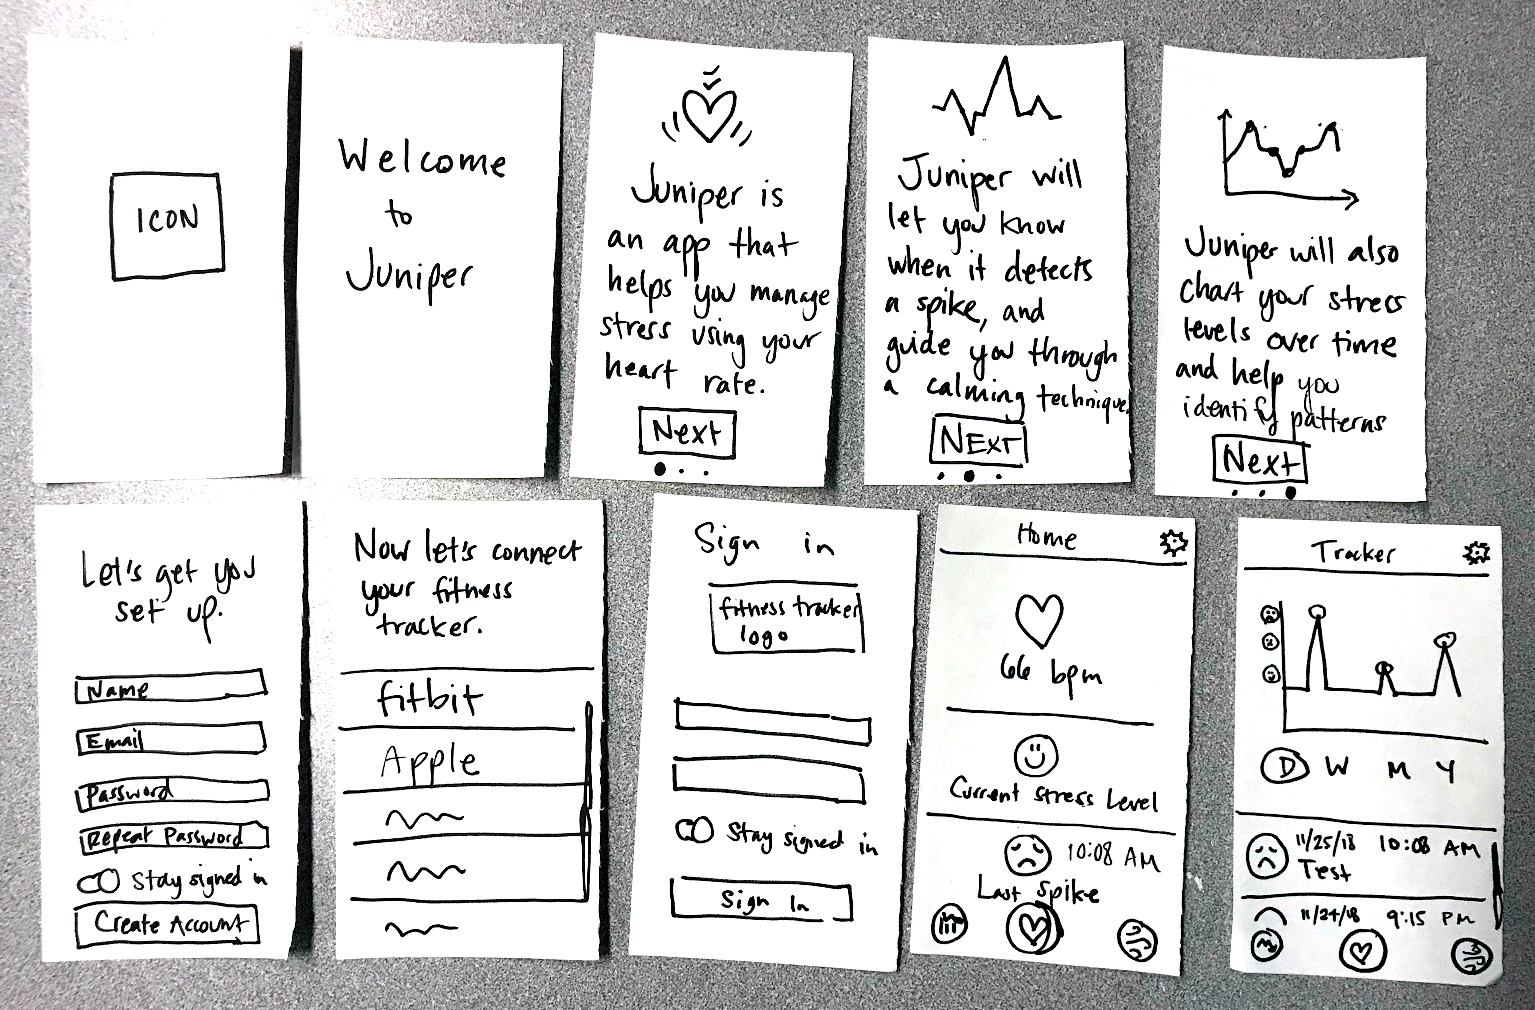 ICON
Welcome
to
Juniper
Juniper is
an app that
helps you manage
stress using your
heart rate.
Next
Juniper will
let you know
when it detects
a spike, and
guide you through
a calming technique.
NEXT
Juniper will also
chart your stress
levels over time
and help you
identify patterns
Next
Let's get you
set up.
Name
Email
Password
Repeat Password
Stay signed in
Create Account
Now let's connect
your fitness
tracker.
fitbit
Apple
Sign in
fitness tracker
logo
Stay signed in
Sign In
Home
66 bpm
Current Stress Level
10:08 AM
Last Spike
Tracker
D W M Y
11/25/18 10:08 AM
Test
11/24/18 9:15 PM